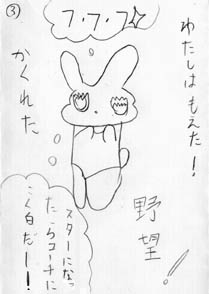 ③
フ・フ・フ
わたしはもえた!
かくれた
野望!
スターになっ
たらコーチに
こく白だー!